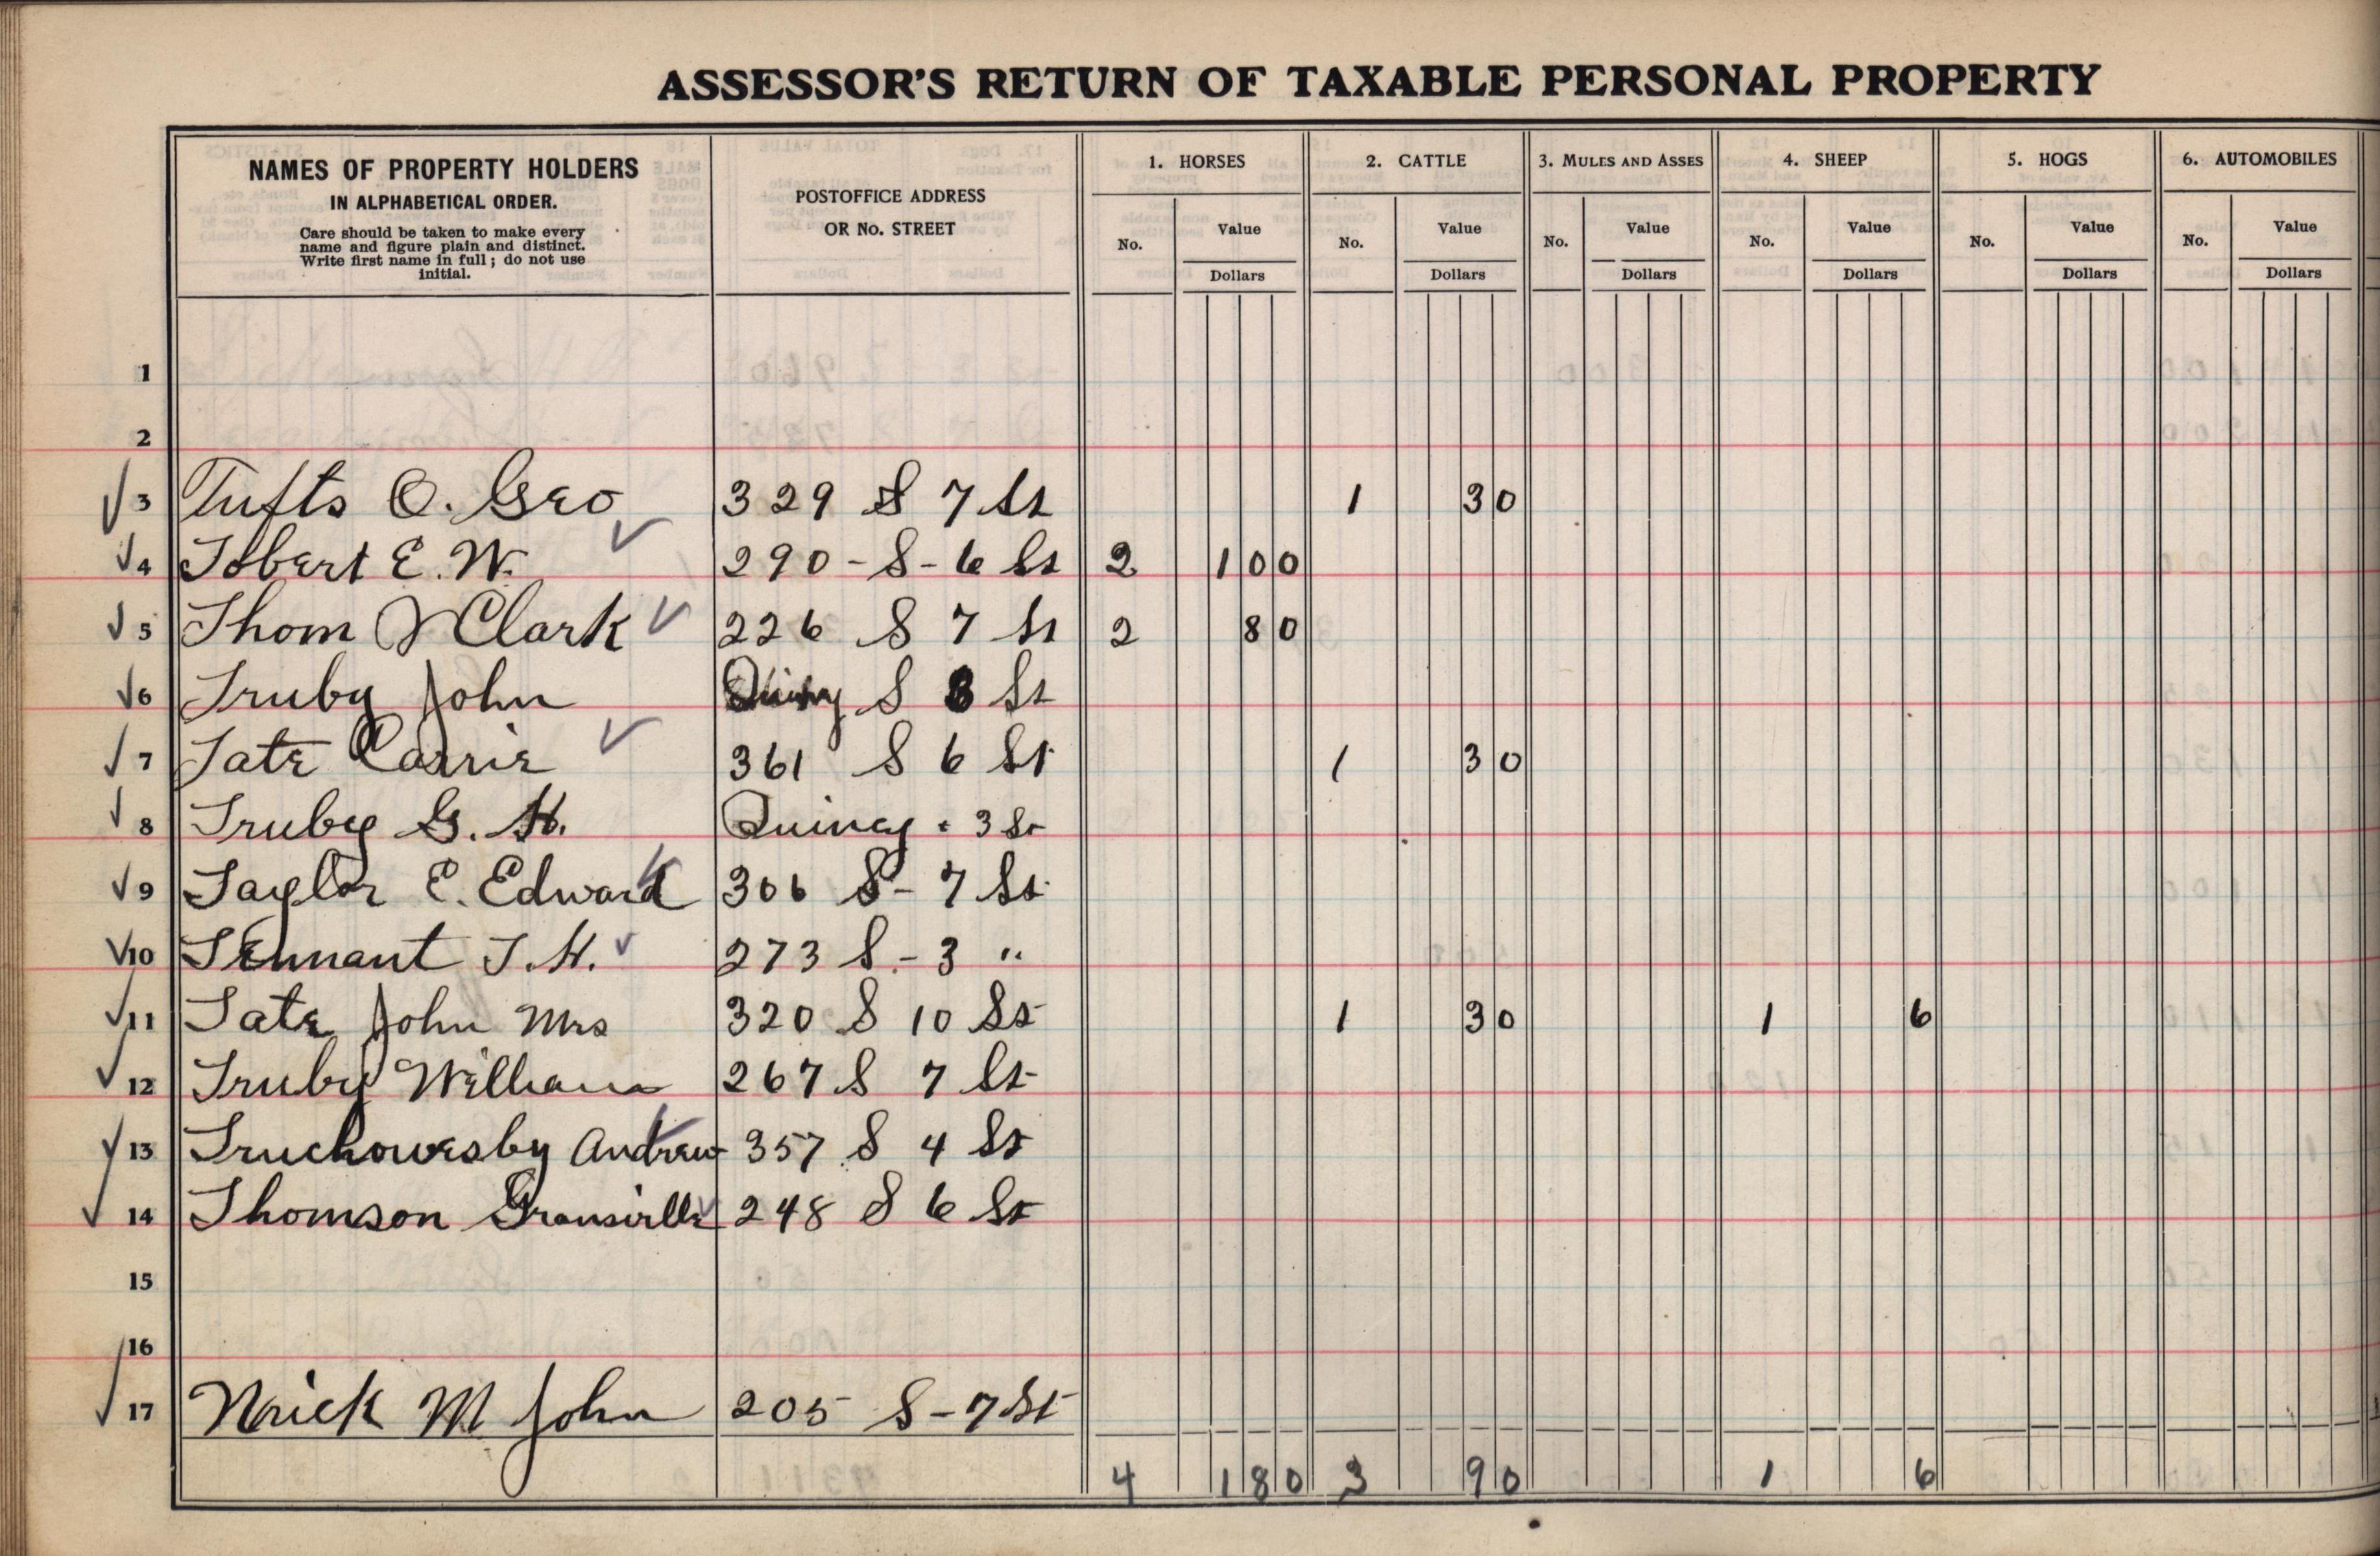 ASSESSOR'S RETURN OF TAXABLE PERSONAL PROPERTY
NAMES OF PROPERTY HOLDERS
IN ALPHABETICAL ORDER.
Care should be taken to make every
name and figure plain and distinct.
Write first name in full; do not use
initial.
POSTOFFICE ADDRESS
OR No. STREET
1. HORSES 2. CATTLE 3. MULES AND ASSES 4. SHEEP 5. HOGS 6. AUTOMOBILES
No. Value No. Value No. Value No. Value No. Value No. Value
Dollars Dollars Dollars Dollars Dollars Dollars
1
2
3 Tufts O. Geo 329 S 7 St 1 30
4 Tobert E. W. 290 - S - 6 St 2 100
5 Thom J Clark 226 S 7 St 2 80
6 Truby John Quincy S 8 St
7 Tate Carrie 361 S 6 St 1 30
8 Truby G. H. Quincy - 3 St
9 Taylor E. Edward 306 S - 7 St
10 Tennant T. H. 273 S - 3 "
11 Tate John Mrs 320 S 10 St 1 30 1 6
12 Truby William 267 S 7 St
13 Truchowesby Andrew 357 S 4 St
14 Thomson Granville 248 S 6 St
15
16
17 M John 205 S - 7 St
4 180 3 90 1 6